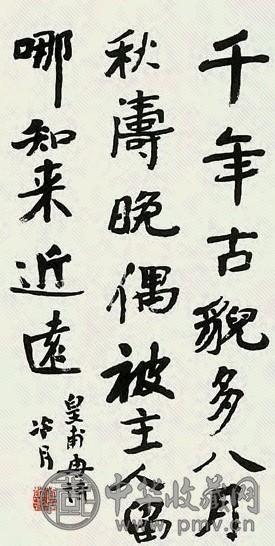 千年古貎多八月
秋濤晚偶被主人留
哪知来近遠
皇甫冉詩
冷月
中华收藏网
www.pmv.cn